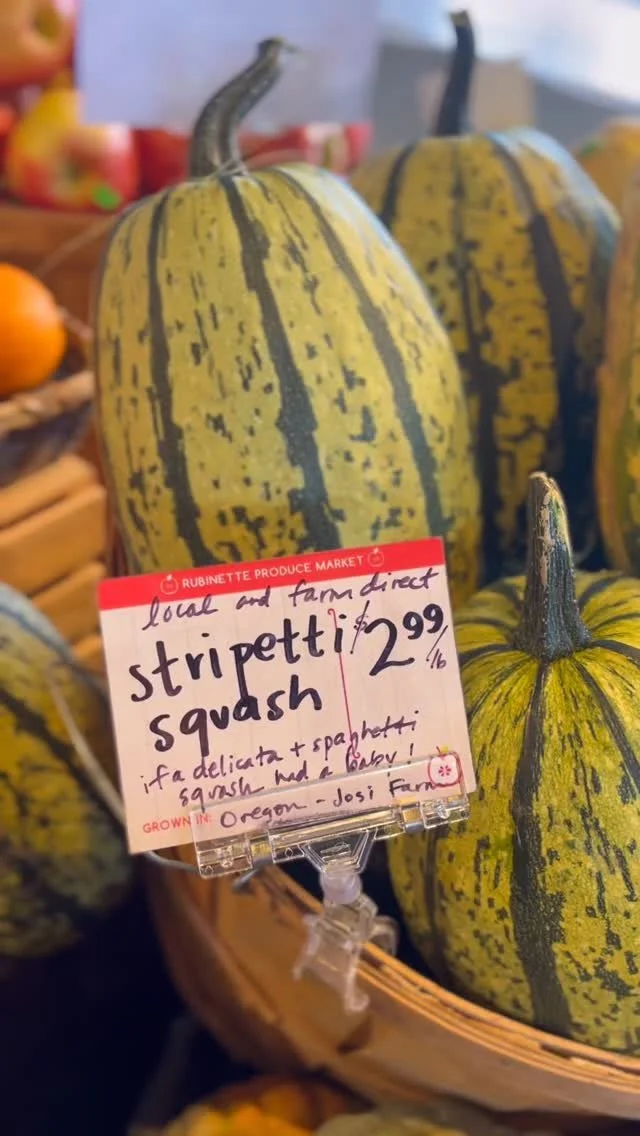 RUBINETTE PRODUCE MARKET
local and farm direct
stripetti $2.99/lb
squash
if a delicata + spaghetti
squash had a baby!
GROWN IN: Oregon - Josi Farm